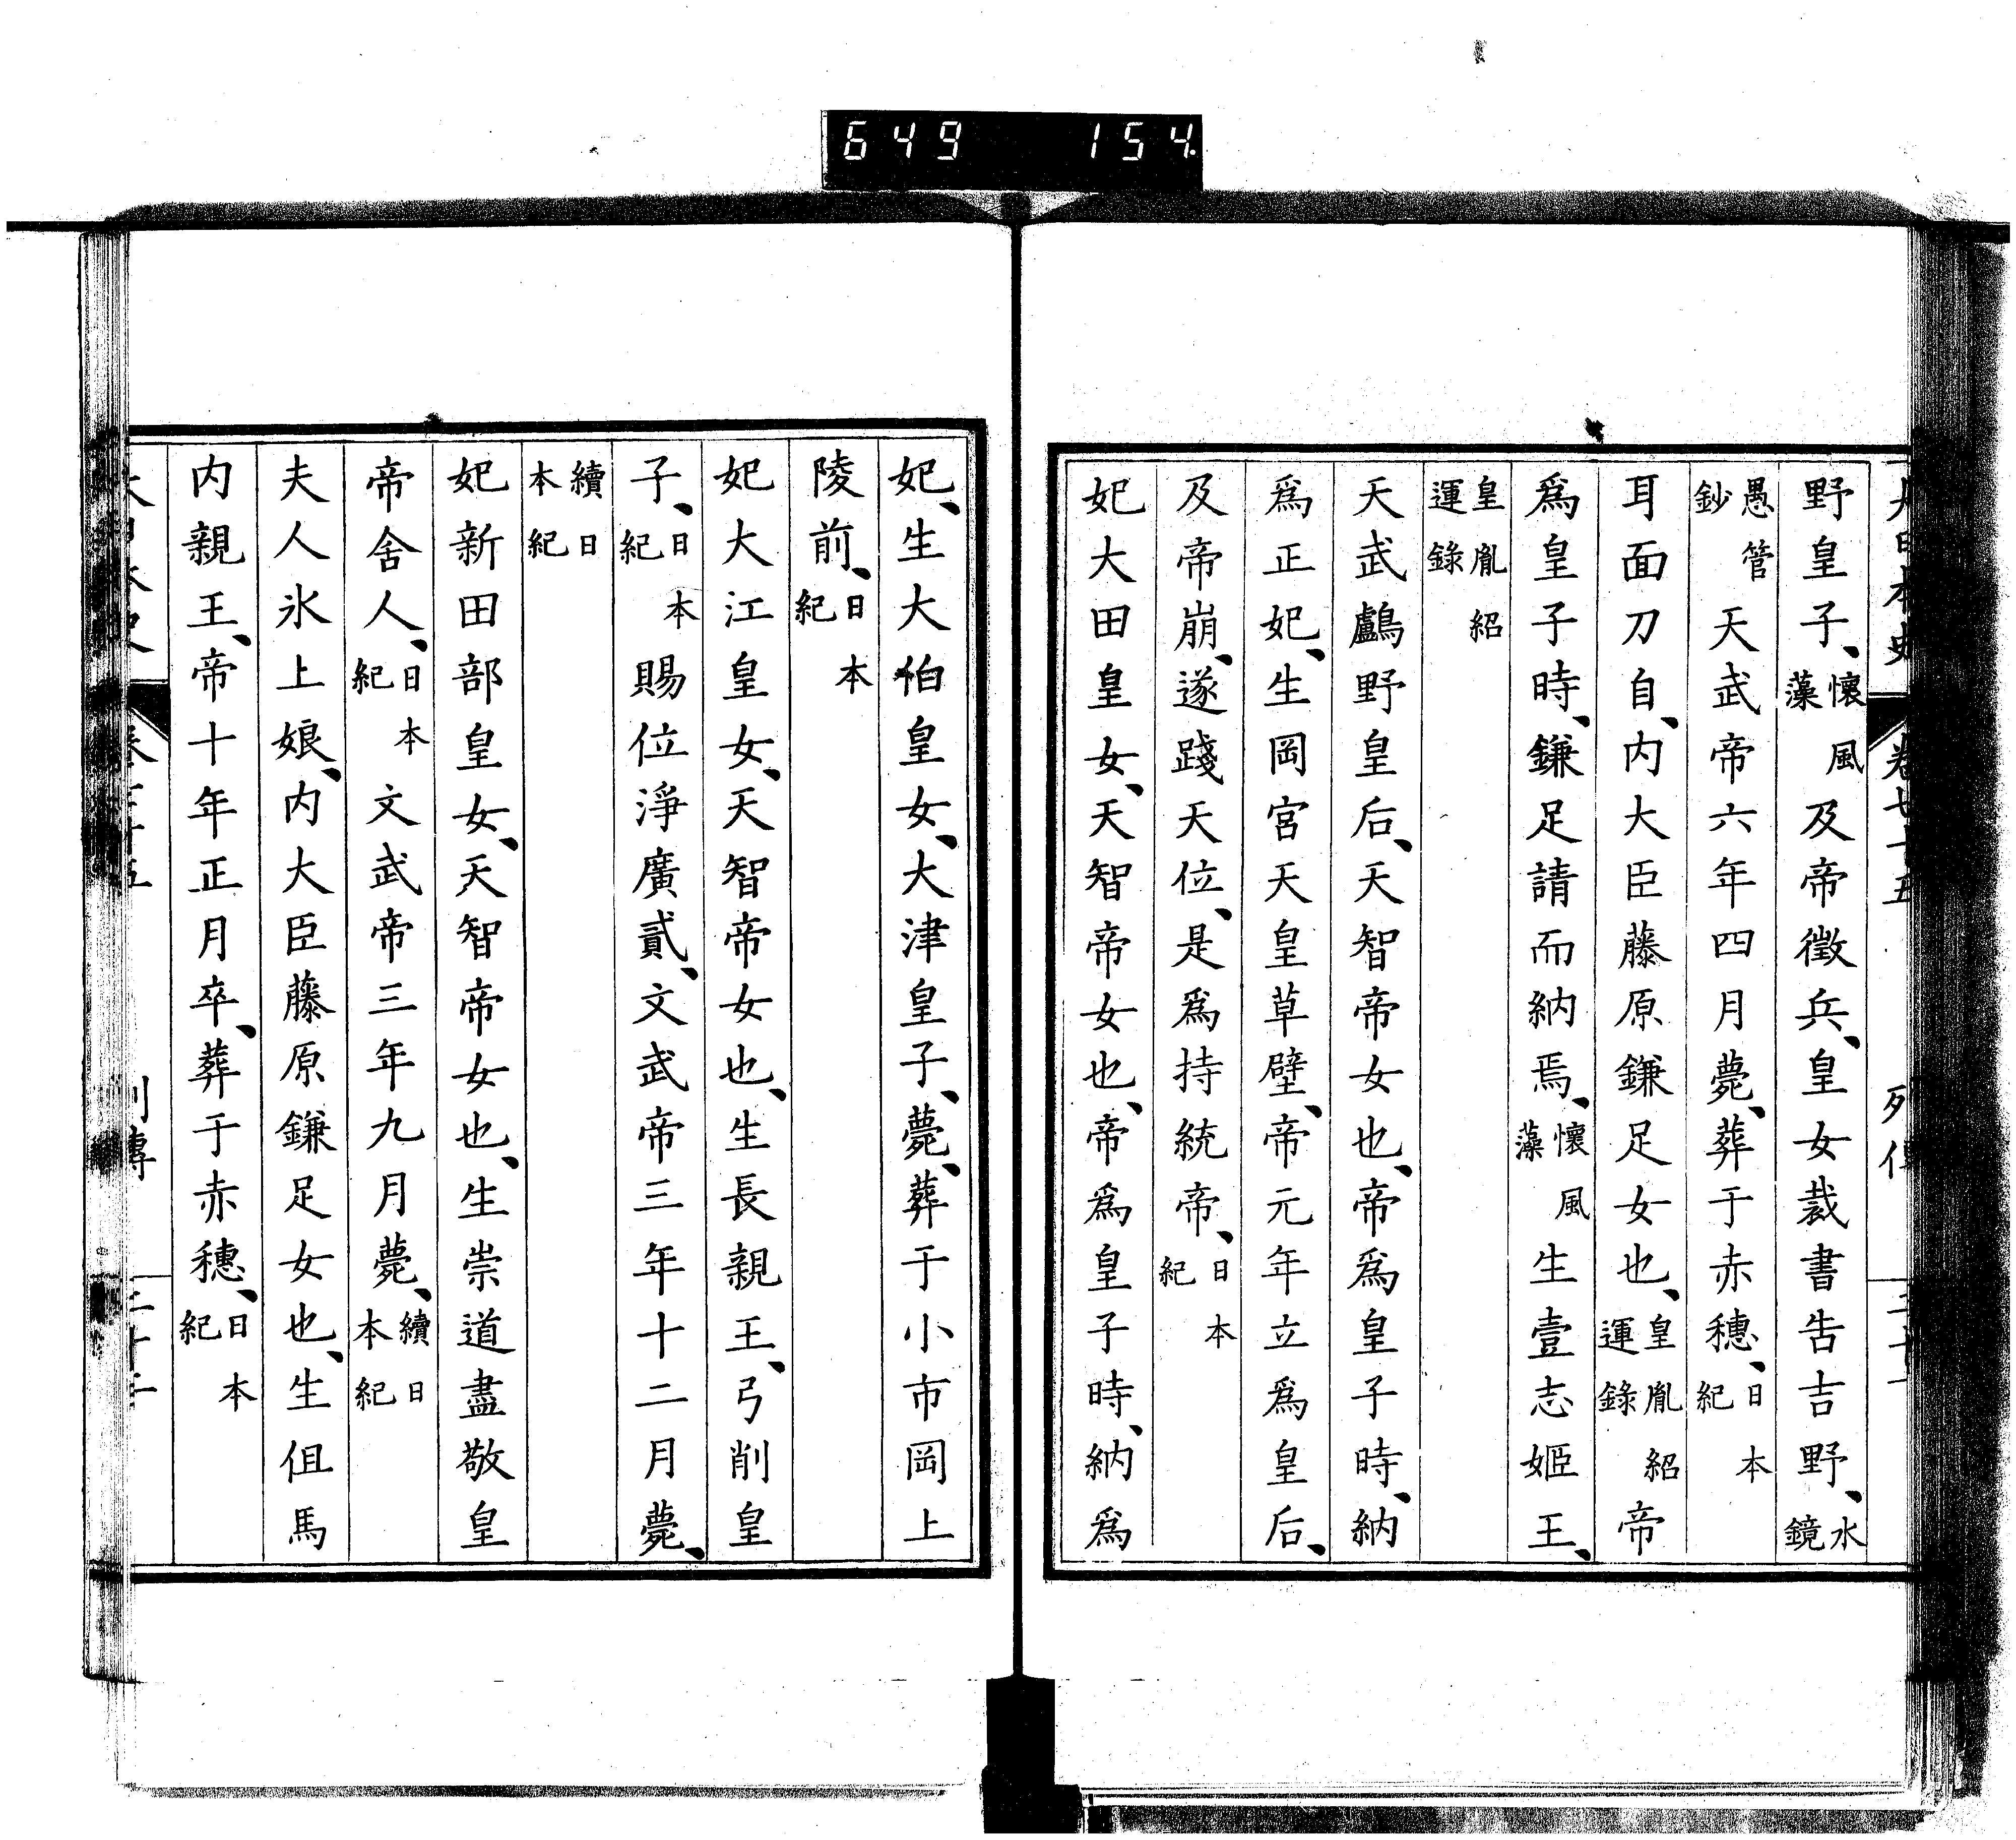 649 154
大日本史 卷七十五 列傳
野皇子、懷風藻及帝徵兵、皇女裁書吿吉野、水鏡
愚管鈔天武帝六年四月薨、葬于赤穗、日本紀
耳面刀自、内大臣藤原鎌足女也、皇胤紹運錄帝
爲皇子時、鎌足請而納焉、懷風藻生壹志姬王、
皇胤紹運錄
天武鸕野皇后、天智帝女也、帝爲皇子時、納
爲正妃、生岡宮天皇草壁、帝元年立爲皇后、
及帝崩、遂踐天位、是爲持統帝、日本紀
妃大田皇女、天智帝女也、帝爲皇子時、納爲
妃、生大伯皇女、大津皇子、薨、葬于小市岡上
陵前、日本紀
妃大江皇女、天智帝女也、生長親王、弓削皇
子、日本紀賜位淨廣貳、文武帝三年十二月薨、
續日本紀
妃新田部皇女、天智帝女也、生崇道盡敬皇
帝舍人、日本紀文武帝三年九月薨、續日本紀
夫人氷上娘、内大臣藤原鎌足女也、生但馬
内親王、帝十年正月卒、葬于赤穗、日本紀